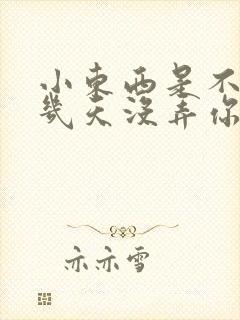 小东西是不
几天没弄你
亦亦雪